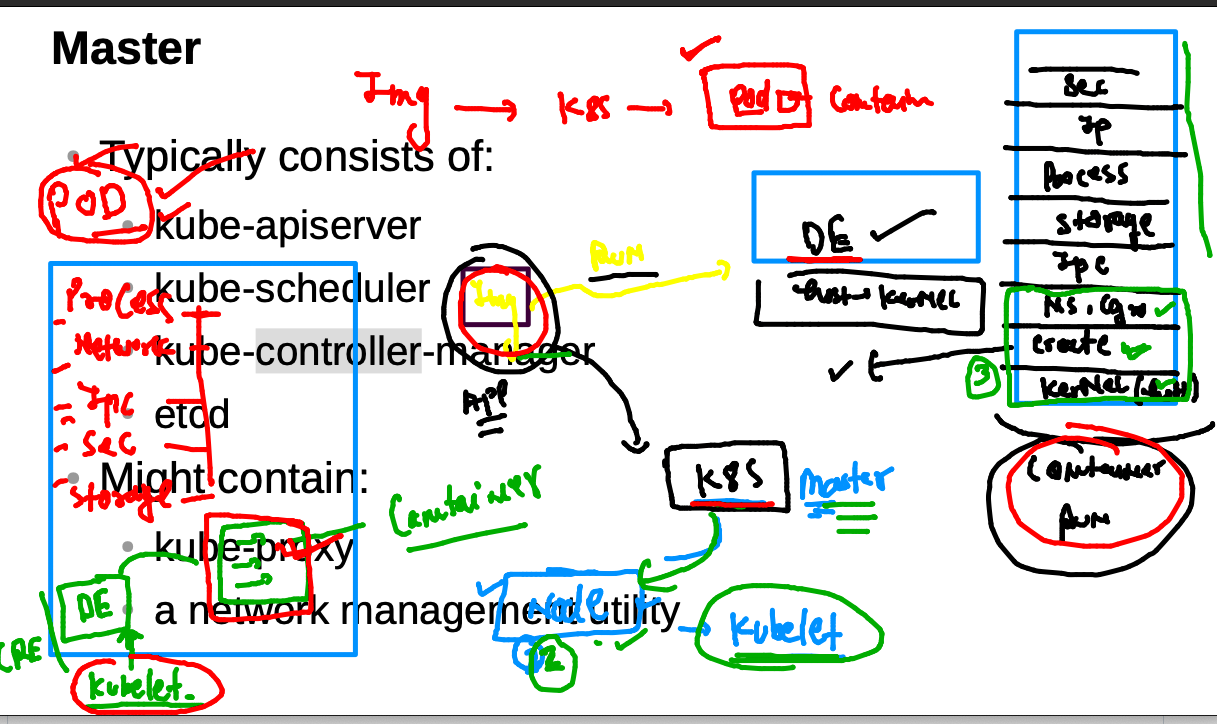 Master
Img → K8S → POD Contain
Typically consists of:
POD
kube-apiserver
kube-scheduler
kube-controller-manager
etcd
Might contain:
kube-proxy
a network management utility
Process
Network
Ipc
Sec
Storage
Container
DE
CRE
Kubelet
Img
RUN
APP
DE
Host KerNeL
K8S
Master
Node
2
Kubelet
Sec
Ip
Process
Storage
Ipc
NS, Cgr
Create
3
KerNeL (Host)
Container
RUN